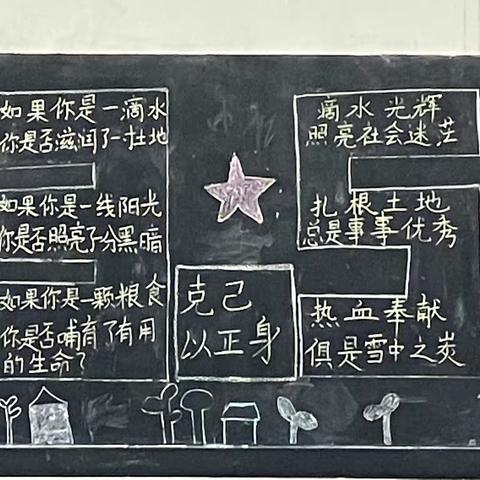 如果你是一滴水
你是否滋润了一寸土地
如果你是一线阳光
你是否照亮了分黑暗
如果你是一颗粮食
你是否哺育了有用
的生命?
克己
以正身
滴水光辉
照亮社会迷茫
扎根土地
总是事事优秀
热血奉献
俱是雪中之炭